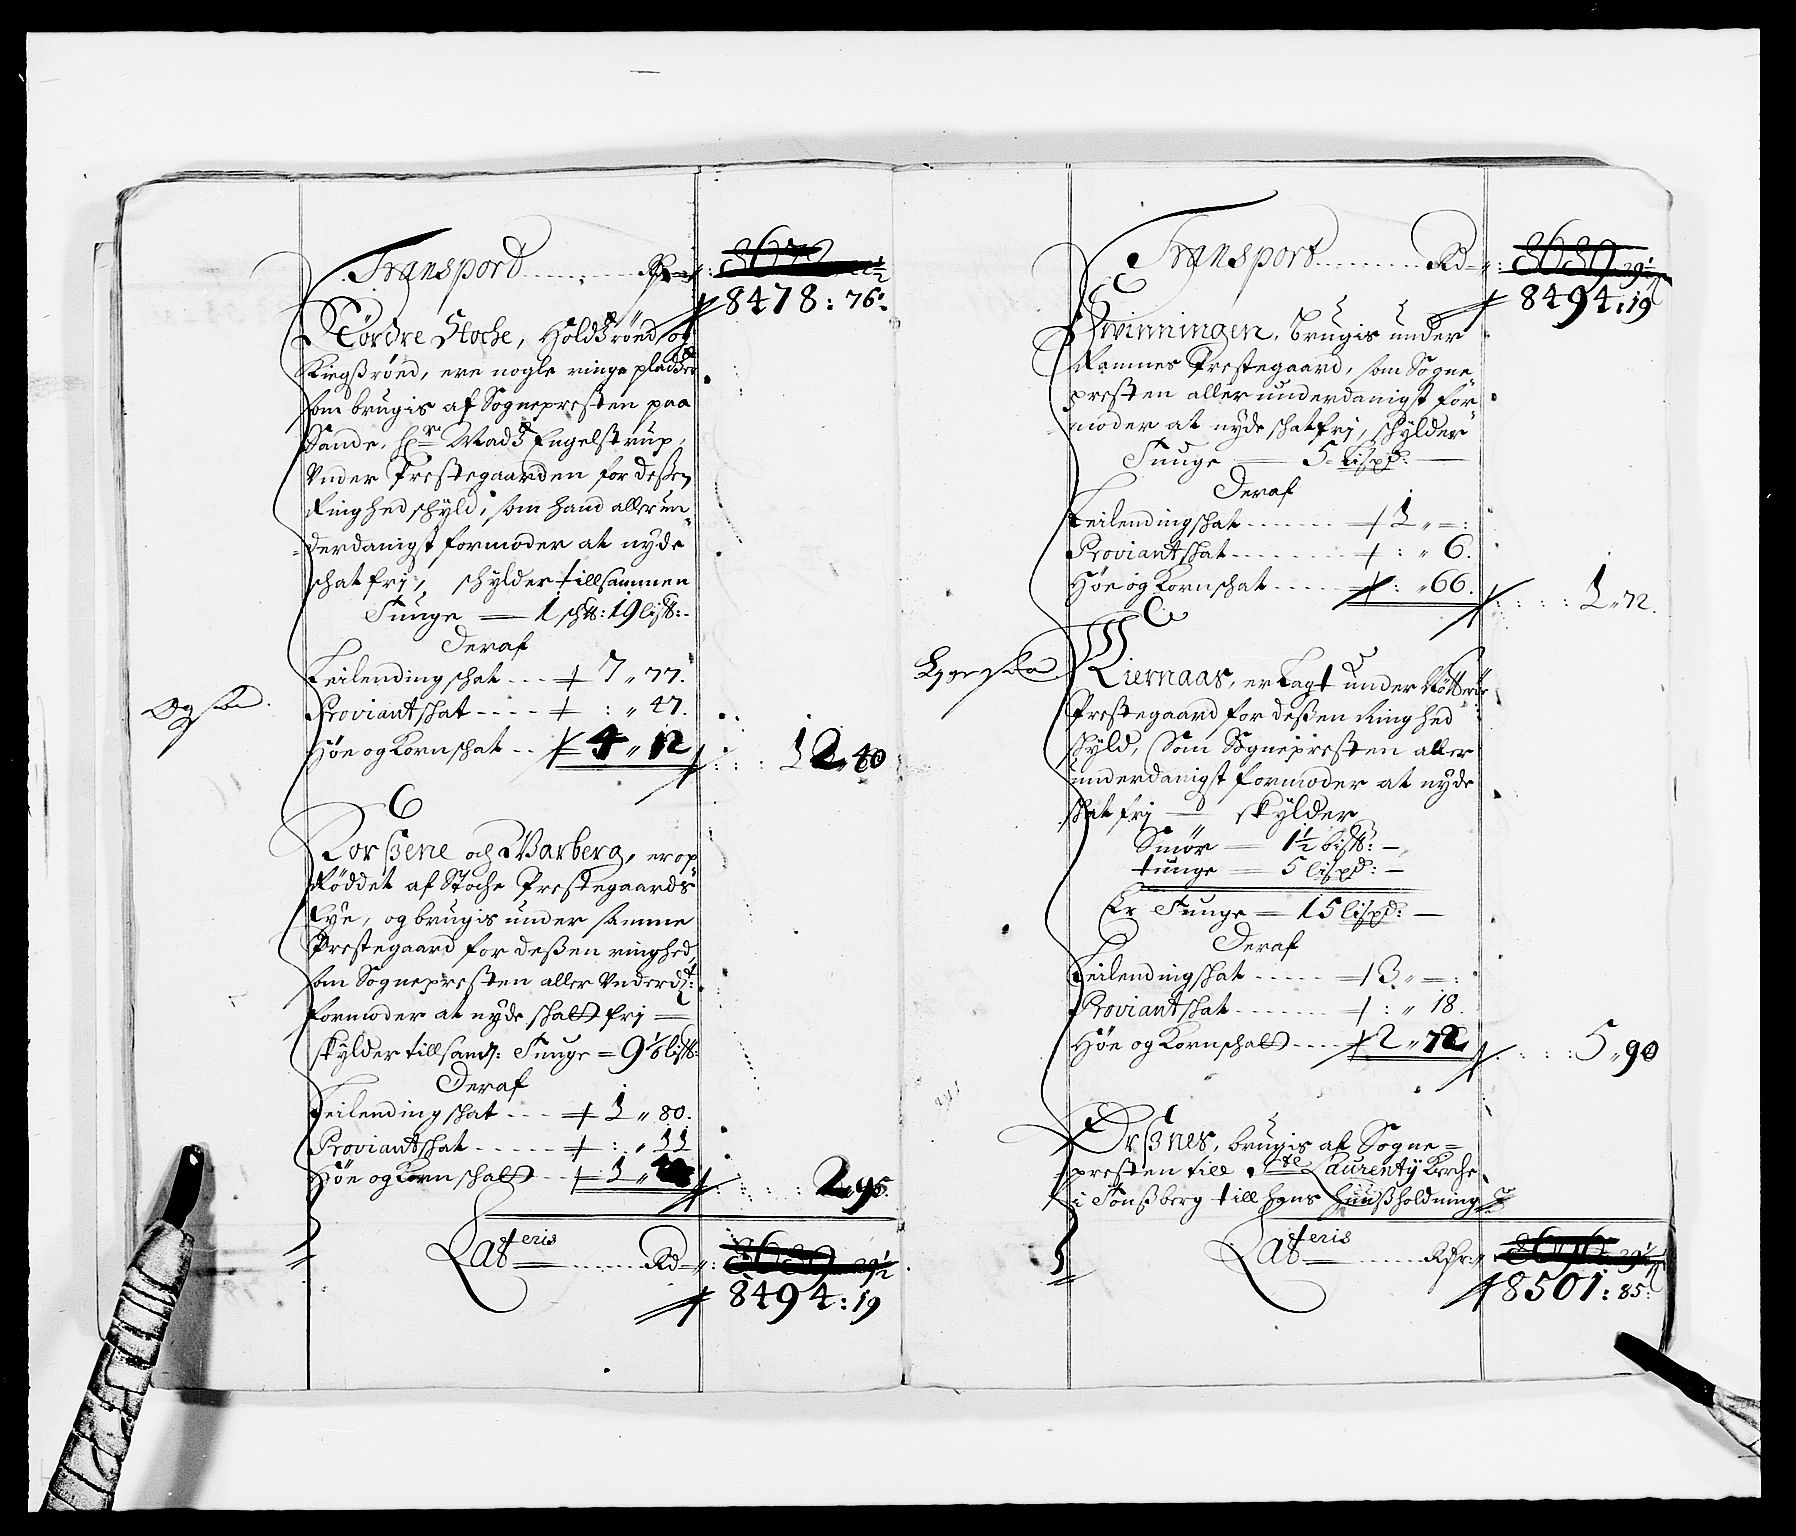 Transport ........ Rd
8478 : 76
Nordre Stoche, Holdtzröed og
Kirgsröed, ere nogle ringe pladtzer
som brugis af Sognepresten paa
Sande, Hr Madtz Engelstrup,
Under Prestegaarden for deßen
Ringhed schyld, som hand allerun-
derdanigst formoder at nyde
schatfrj, schylder tillsammen
Tunge — 1 schtt: 19 listt:
Deraf
Leilendingschat ... 7 " 77.
Proviantschat .... : " 47.
Höe og Kornschat .. 4 " 12
12 " 40
Korßene och Warberg, er op
Röddet af Stoche Prestegaards
Eye, og brugis under samme
Prestegaard for deßen ringhed,
som Sognepresten aller Underdt:
formoder at nyde schatt frj —
skylder tillsam: Tunge = 9 listt:
Deraf
Leilendingschat ... 1 " 80.
Proviantschat ..... : " 11
Höe og Kornschatt .. 1 "
2 " 95.
Lateris ........ Rd
8494 : 19
Transport ........ Rd
8494 : 19
Qvinningen, Brugis under
Ramnes Prestegaard, som Sogne
presten allerunderdanigst for-
moder at nyde schatfrj, schylder
Tunge — 5 lispd: —
Deraf
Leilendingschat ...... 1 " = :
Proviantschat ....... : " 6.
Höe og Kornschat ..... : " 66.
1 " 72.
Kiernaas, er Lagt under Nötterö
Prestegaard for deßen Ringhed
schyld, som Sognepresten aller
underdanigst formoder at nyde
schatfrj — skylder
Smör — 1½ listt: —
tunge — 5 lispd: —
Er Tunge — 15 lispd: —
Deraf
Leilendingschat ..... 3 " = :
Proviantschat ....... : " 18.
Höe og Kornschatt .... 2 " 72
5 " 90
Orßnes, brugis af Sogne =
presten till Ste Laurentij Kirche
i Tönßberg till hans Huußholdning
Lateris ........
8501 : 85: